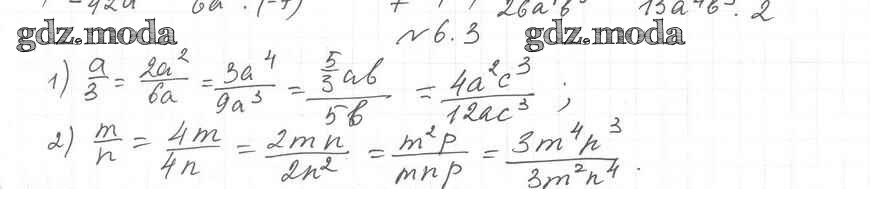 -42a 6a · (-7) 26a b 13a b · 2
gdz.moda №6.3 gdz.moda
1) a/3 = 2a²/6a = 3a⁴/9a³ = 5/3 ab/5b = 4a²c³/12ac³ ;
2) m/n = 4m/4n = 2mn/2n² = m²p/mnp = 3m⁴n³/3m²n⁴ .